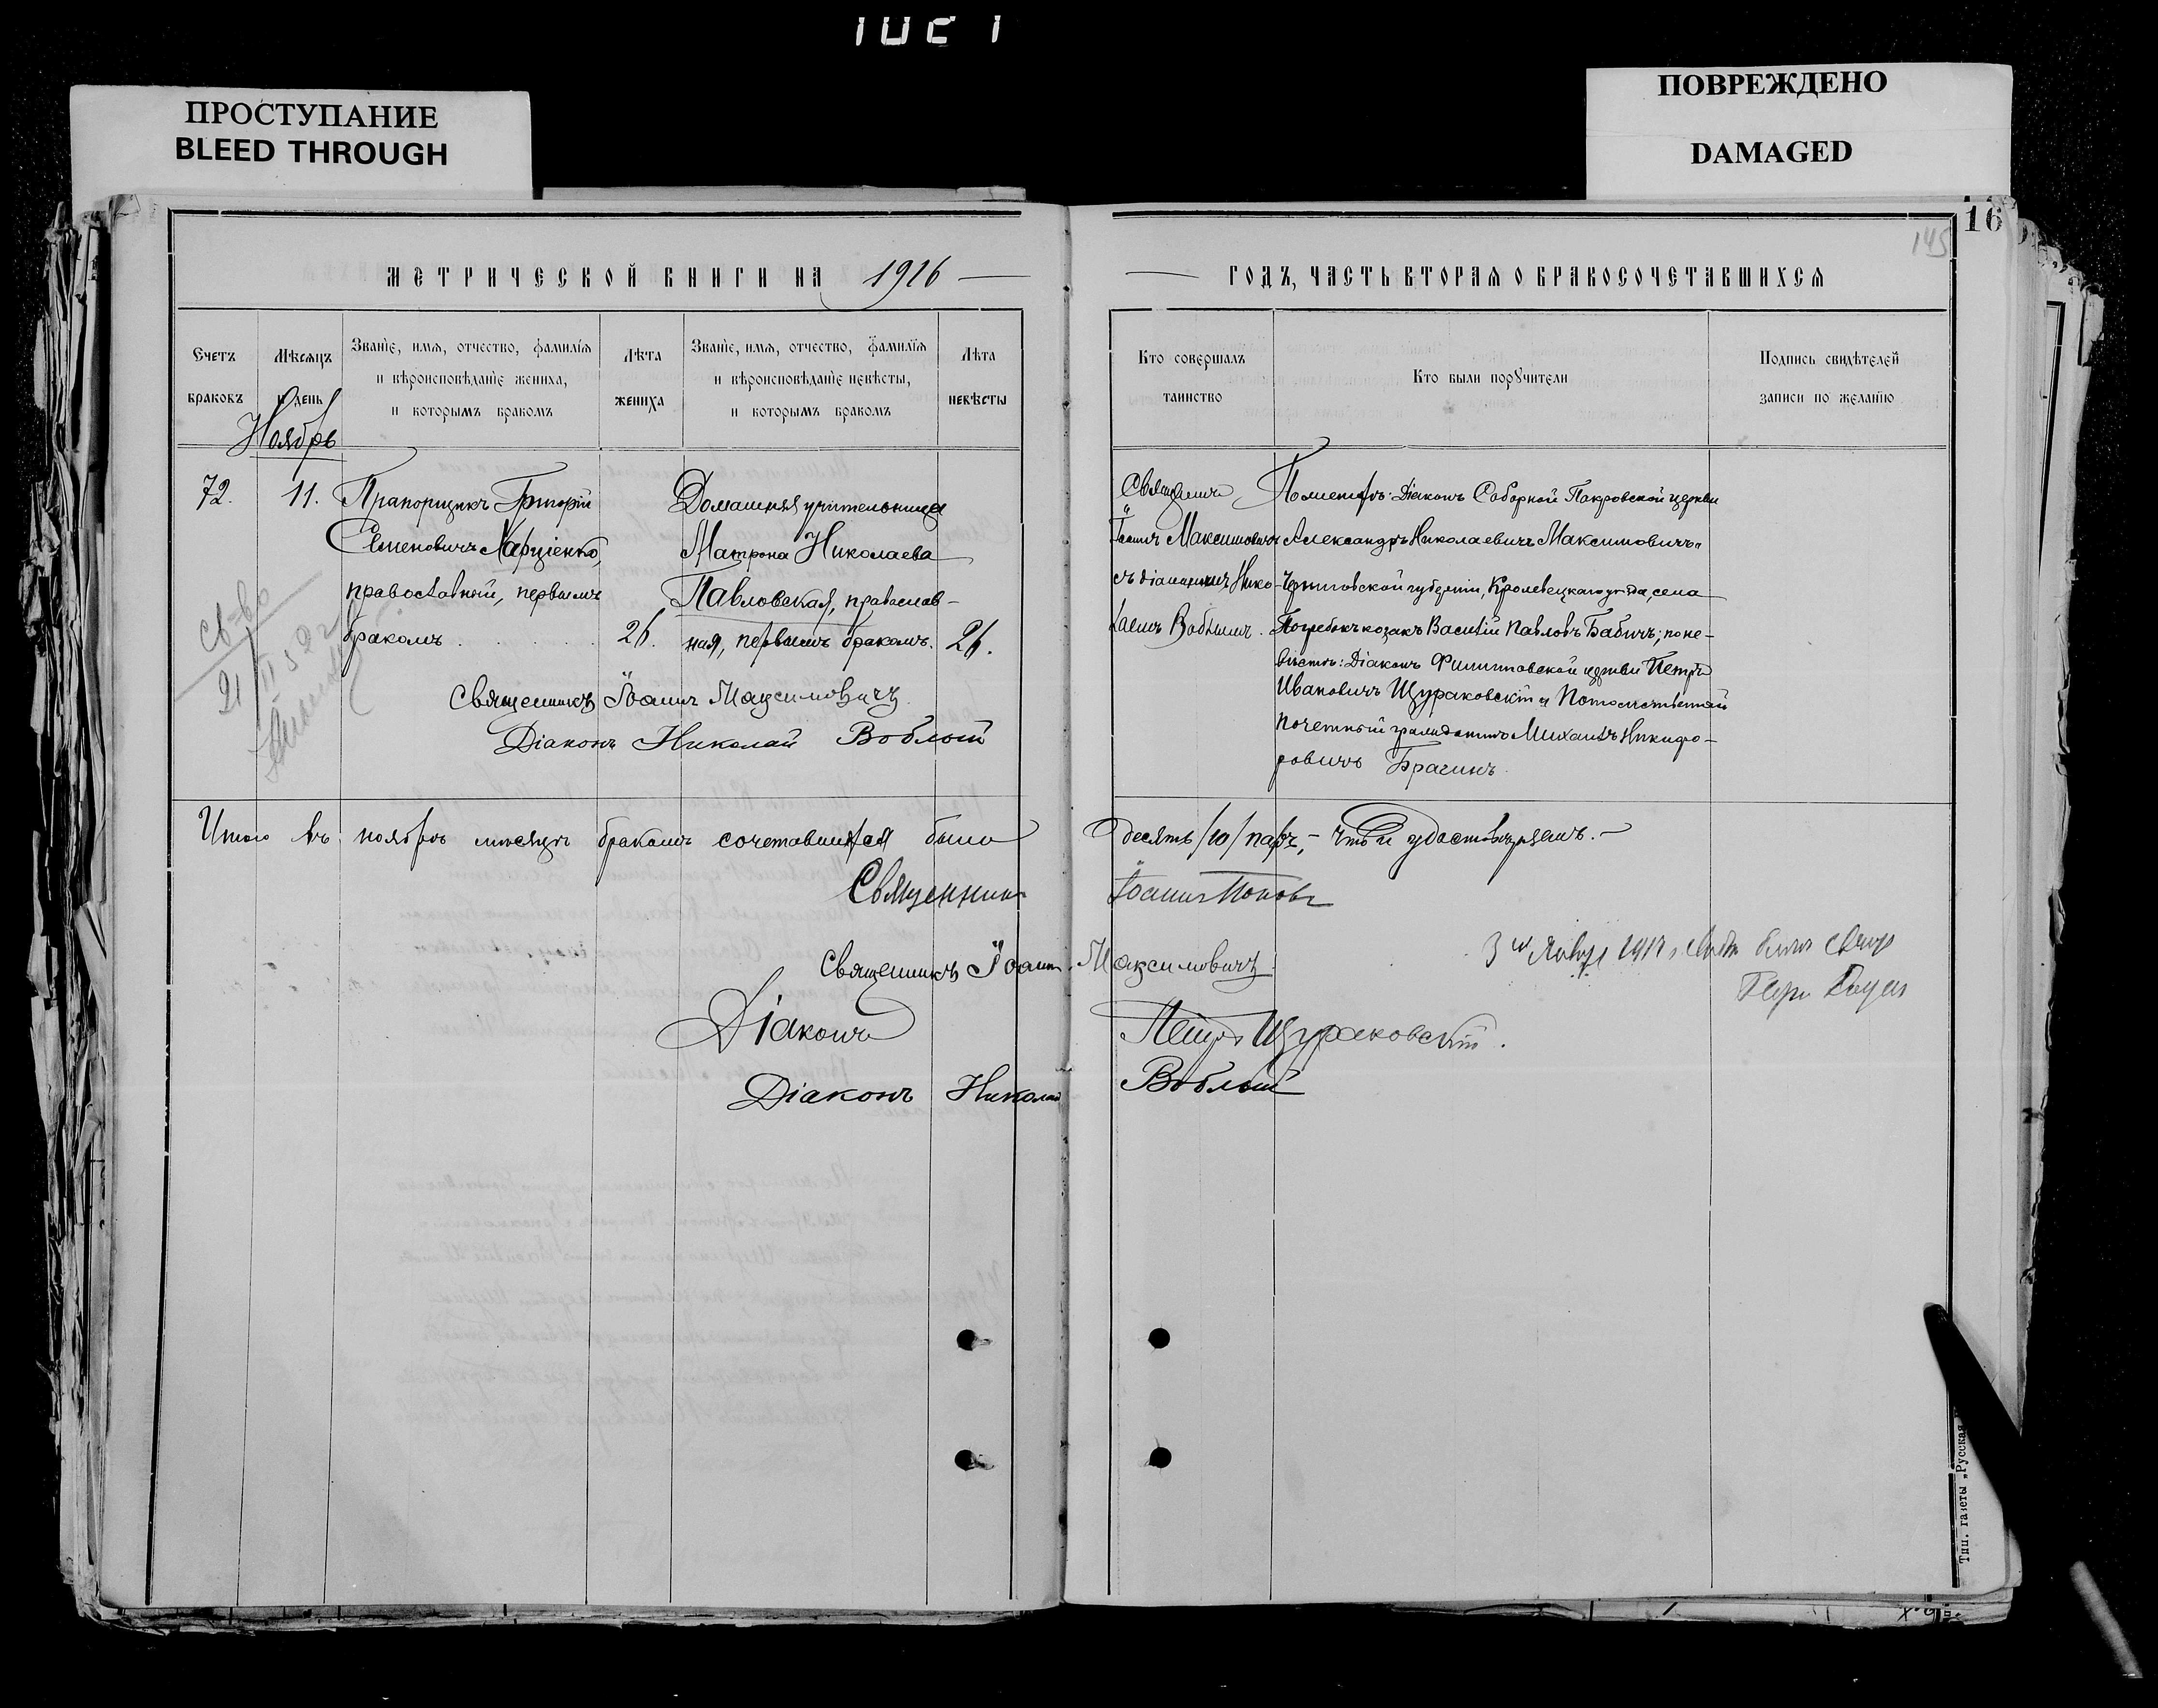 ПРОСТУПАНИЕ
BLEED THROUGH
ПОВРЕЖДЕНО
DAMAGED
16
145
МЕТРИЧЕСКОЙ КНИГИ НА 1916
ГОДЪ, ЧАСТЬ ВТОРАЯ О БРАКОСОЧЕТАВШИХСЯ
Счетъ браковъ
Мѣсяцъ и день
Званіе, имя, отчество, фамилія и вѣроисповѣданіе жениха, и которымъ бракомъ
Лѣта жениха
Званіе, имя, отчество, фамилія и вѣроисповѣданіе невѣсты, и которымъ бракомъ
Лѣта невѣсты
Кто совершалъ таинство
Кто были поручители
Подпись свидѣтелей записи по желанію
Ноябрь
72.
11.
Прапорщикъ Григорій
Семеновичъ Харціенко,
православный, первымъ
бракомъ
26.
Домашняя учительница
Матрона Николаева
Павловская, православ-
ная, первымъ бракомъ.
26.
св-во
21
Священникъ Іоаннъ Максимовичъ
Діаконъ Николай Воблый
Священ
Іоаннъ Максимовичъ
съ діакономъ Нико-
лаемъ Воблымъ.
По женихѣ: Діаконъ Соборной Покровской церкви
Александръ Николаевичъ Максимовичъ и
Черниговской губерніи, Кролевецкаго уѣзда, села
Погребокъ козакъ Василій Павловъ Бабичъ; по не-
вѣстѣ: Діаконъ Филипповской церкви Петръ
Ивановичъ Щураковскій и Потомственный
почетный гражданинъ Михаилъ Никифо-
ровичъ Брагинъ.
Итого въ ноябрѣ мѣсяцѣ бракомъ сочетавшихся было десять /10/ паръ, - что и удостовѣряемъ. -
Священникъ Іоаннъ Поповъ
Священникъ Іоаннъ Максимовичъ
3 Января 1917
Діаконъ Петръ Щураковскій.
Діаконъ Николай Воблый
Тип. газеты „Русская